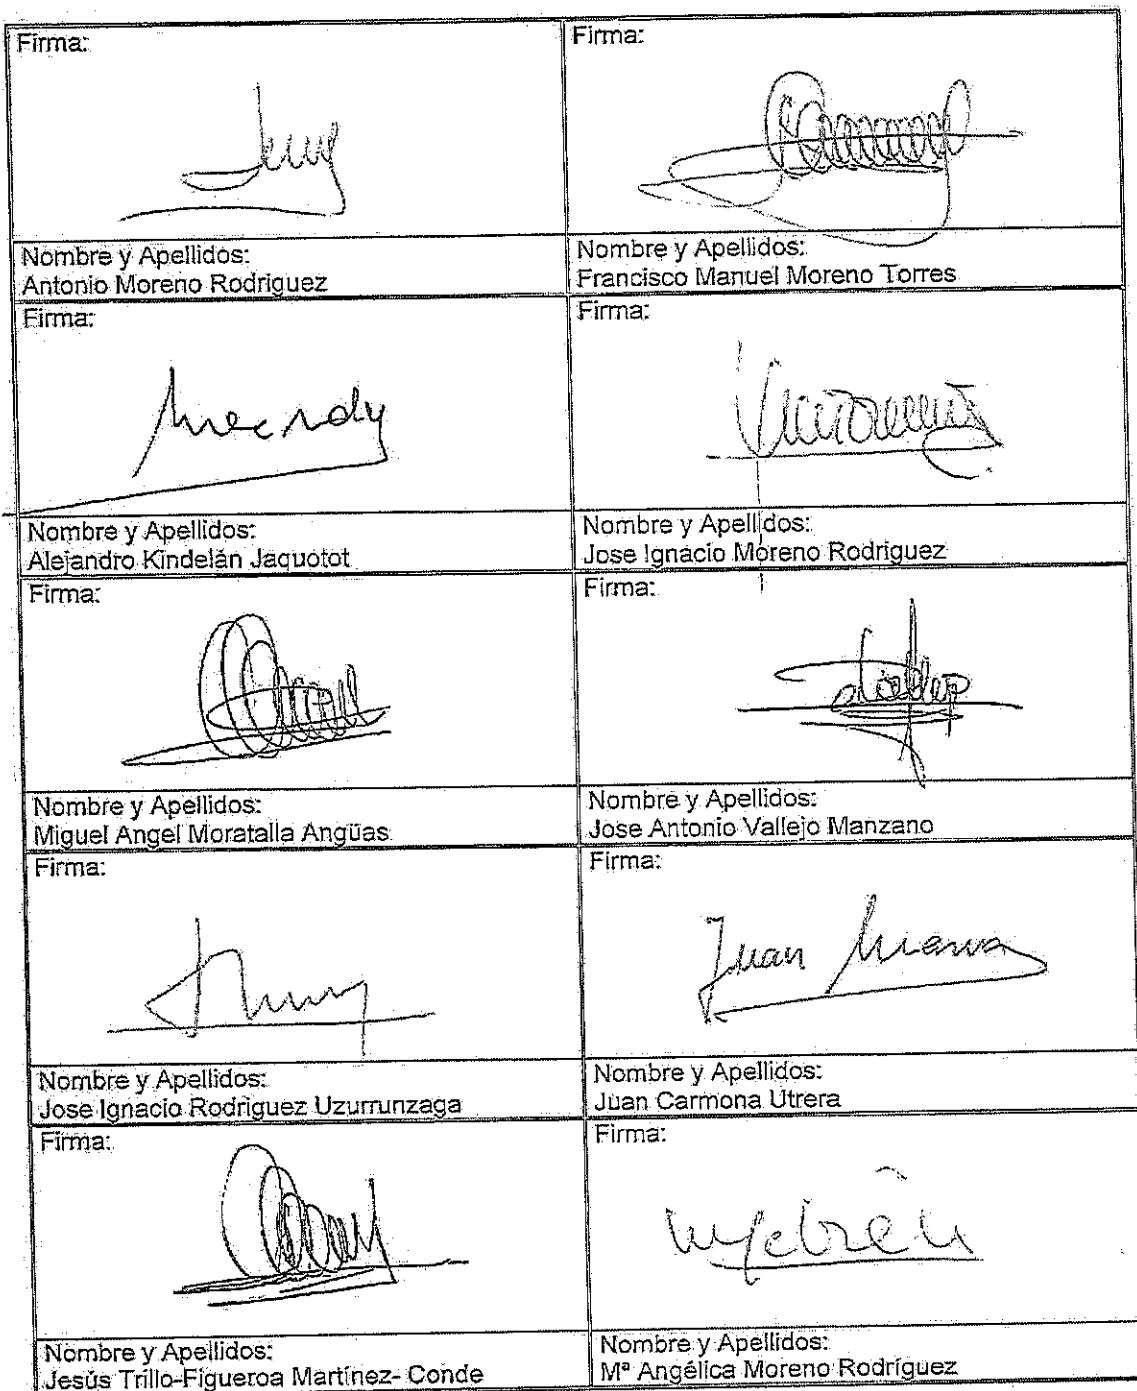 Firma:
Firma:
Nombre y Apellidos:
Antonio Moreno Rodriguez
Nombre y Apellidos:
Francisco Manuel Moreno Torres
Firma:
Firma:
Nombre y Apellidos:
Alejandro Kindelán Jaquotot
Nombre y Apellidos:
Jose Ignacio Moreno Rodriguez
Firma:
Firma:
Nombre y Apellidos:
Miguel Angel Moratalla Angüas
Nombre y Apellidos:
Jose Antonio Vallejo Manzano
Firma:
Firma:
Juan
Nombre y Apellidos:
Jose Ignacio Rodriguez Uzurrunzaga
Nombre y Apellidos:
Juan Carmona Utrera
Firma:
Firma:
Nombre y Apellidos:
Jesús Trillo-Figueroa Martínez- Conde
Nombre y Apellidos:
Mª Angélica Moreno Rodríguez